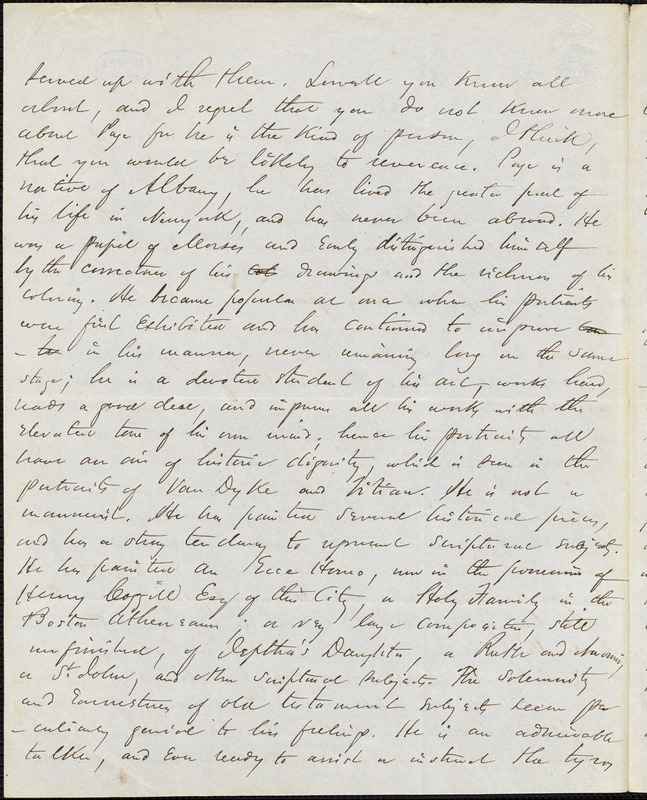 served up with them. Lowell you know all
about, and I regret that you do not know more
about Page for he is the kind of person, I think,
that you would be likely to reverence. Page is a
native of Albany, he has lived the greater part of
his life in New york, and has never been abroad. He
was a pupil of Morses and Early distinguished himself
by the correctness of his drawings and the richness of his
coloring. He became popular at once when his portraits
were first Exhibited and has continued to improve
- in his manner, never remaining long in the same
stage; he is a devoted student of his art, works hard,
reads a good deal, and imprses all his works with the
Elevated tone of his own mind; hence his portraits all
have an air of historic dignity, which is seen in the
portraits of Van Dyke and Titian. He is not a
mannerist. He has painted several historical pieces,
and has a strong tendency to represent scriptural subjects.
He has painted an Ecce Homo, now in the possession of
Henry Cogill Esq of this City, a Holy Family in the
Boston Athenaeum; a very large composition, still
unfinished, of Jeptha's Daughter, a Ruth and Naomi,
a St John, and other scriptural subjects. The solemnity
and Earnestness of old testament subjects seem pe
-culiarly genial to his feelings. He is an admirable
talker, and Ever ready to assist or instruct the tyros